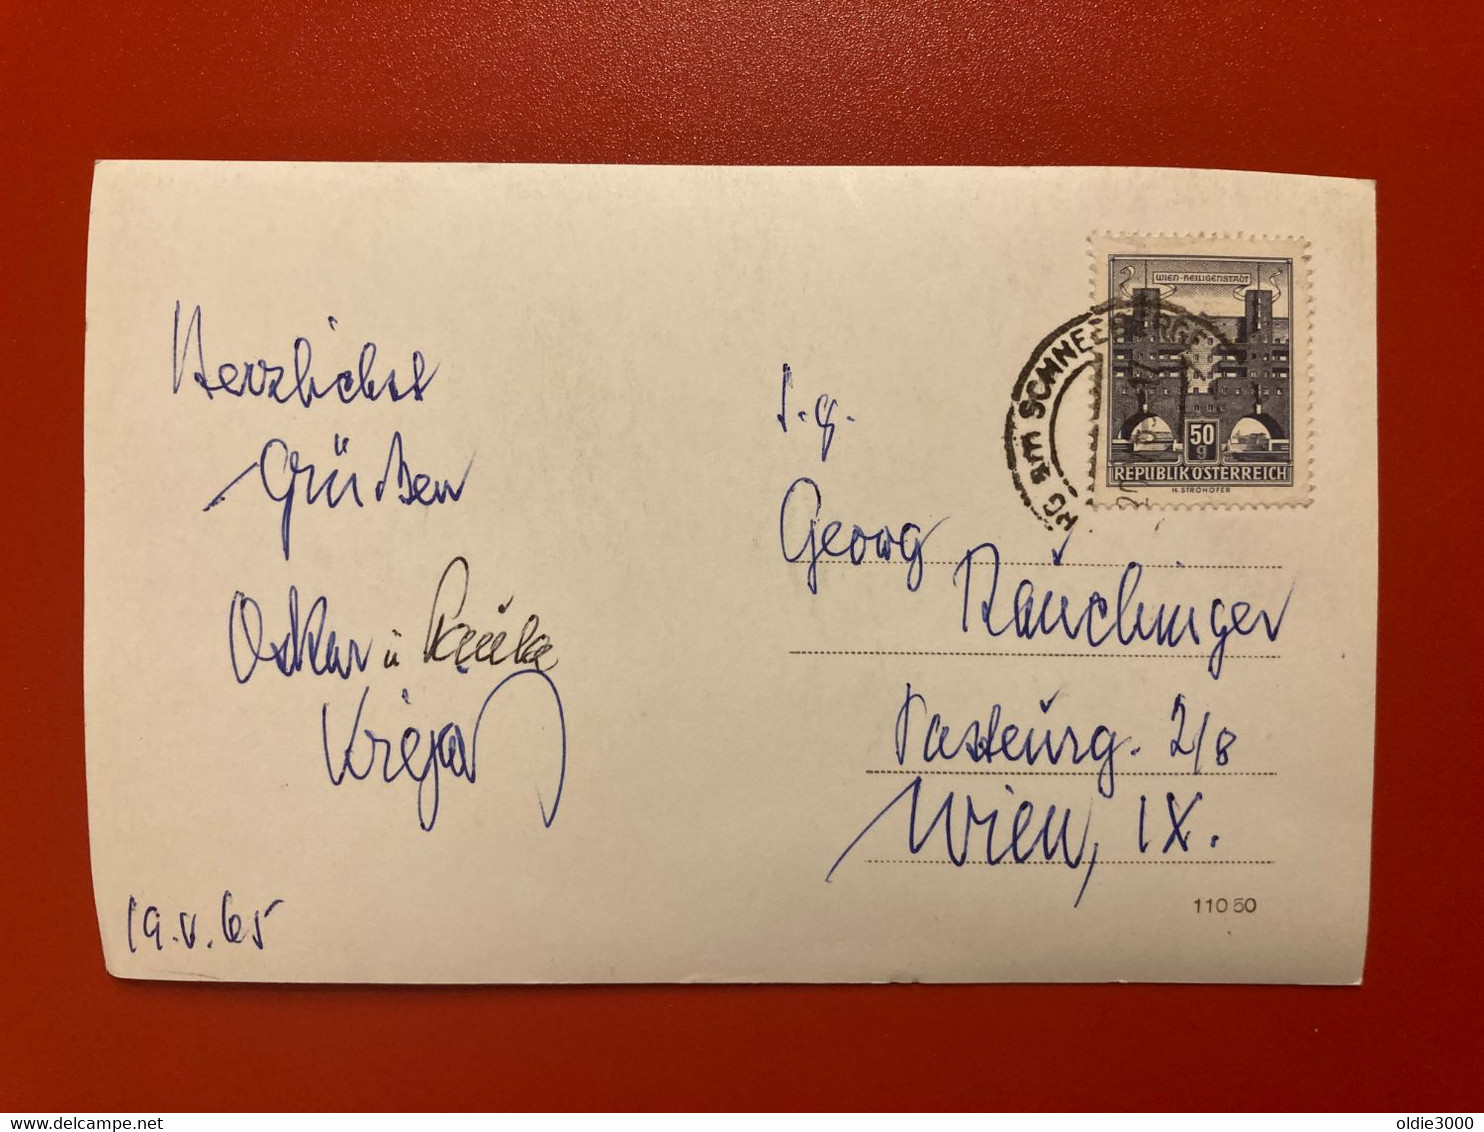 WIEN-HEILIGENSTADT
RG am SCHNEEBERGE
50
g
REPUBLIK ÖSTERREICH
H. STROHOFER
Herzlichst
Grüßen
Oskar u Paula
19.V.65
S.g.
Georg
Rauchinger
Pasteurg. 2/8
Wien, IX.
110 50
delcampe.net
oldie3000